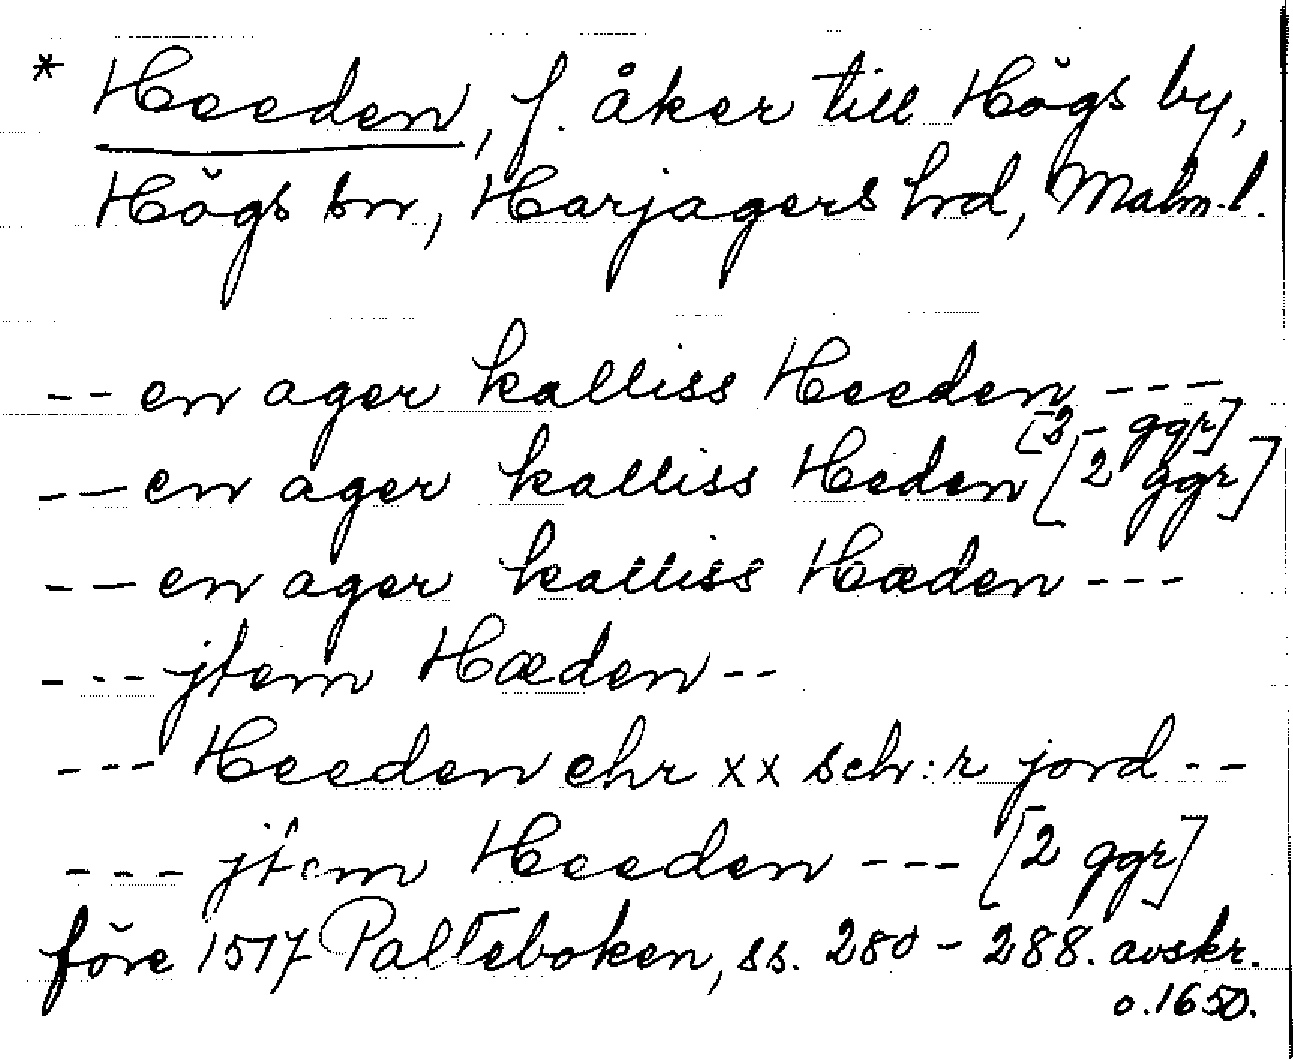 * Heeden, f. åker till Högs by,
Högs sn, Harjagers hrd, Malm.l.
-- en ager kalliss Heeden ---
[3 - ggr]
-- en ager kalliss Heden [2 ggr]
-- en ager kalliss Hæden ---
--- jtem Hæden --
--- Heeden ehr xx schr:r jord --
--- jtem Heeden --- [2 ggr]
före 1517 Palteboken, ss. 280 - 288. avskr.
o. 1650.